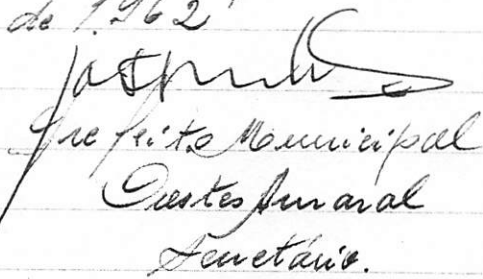 de 1.962
Prefeito Municipal
Orestes Amaral
Secretário.